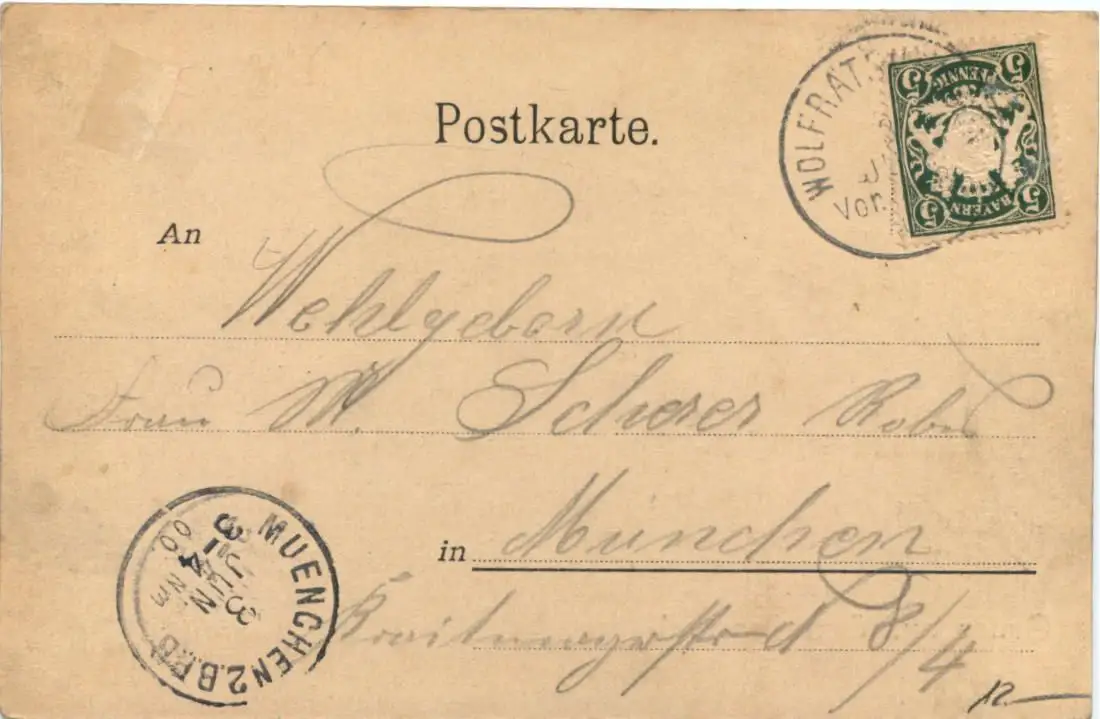 Postkarte.
WOLFRATS
Vor.
5 PFENNIG 5
5 BAYERN 5
An
Wohlgeborn
Frau M. Scherer
in München
8/4
MUENCHEN 2 B.
3 JUN
3-4
Nm
00.
12.